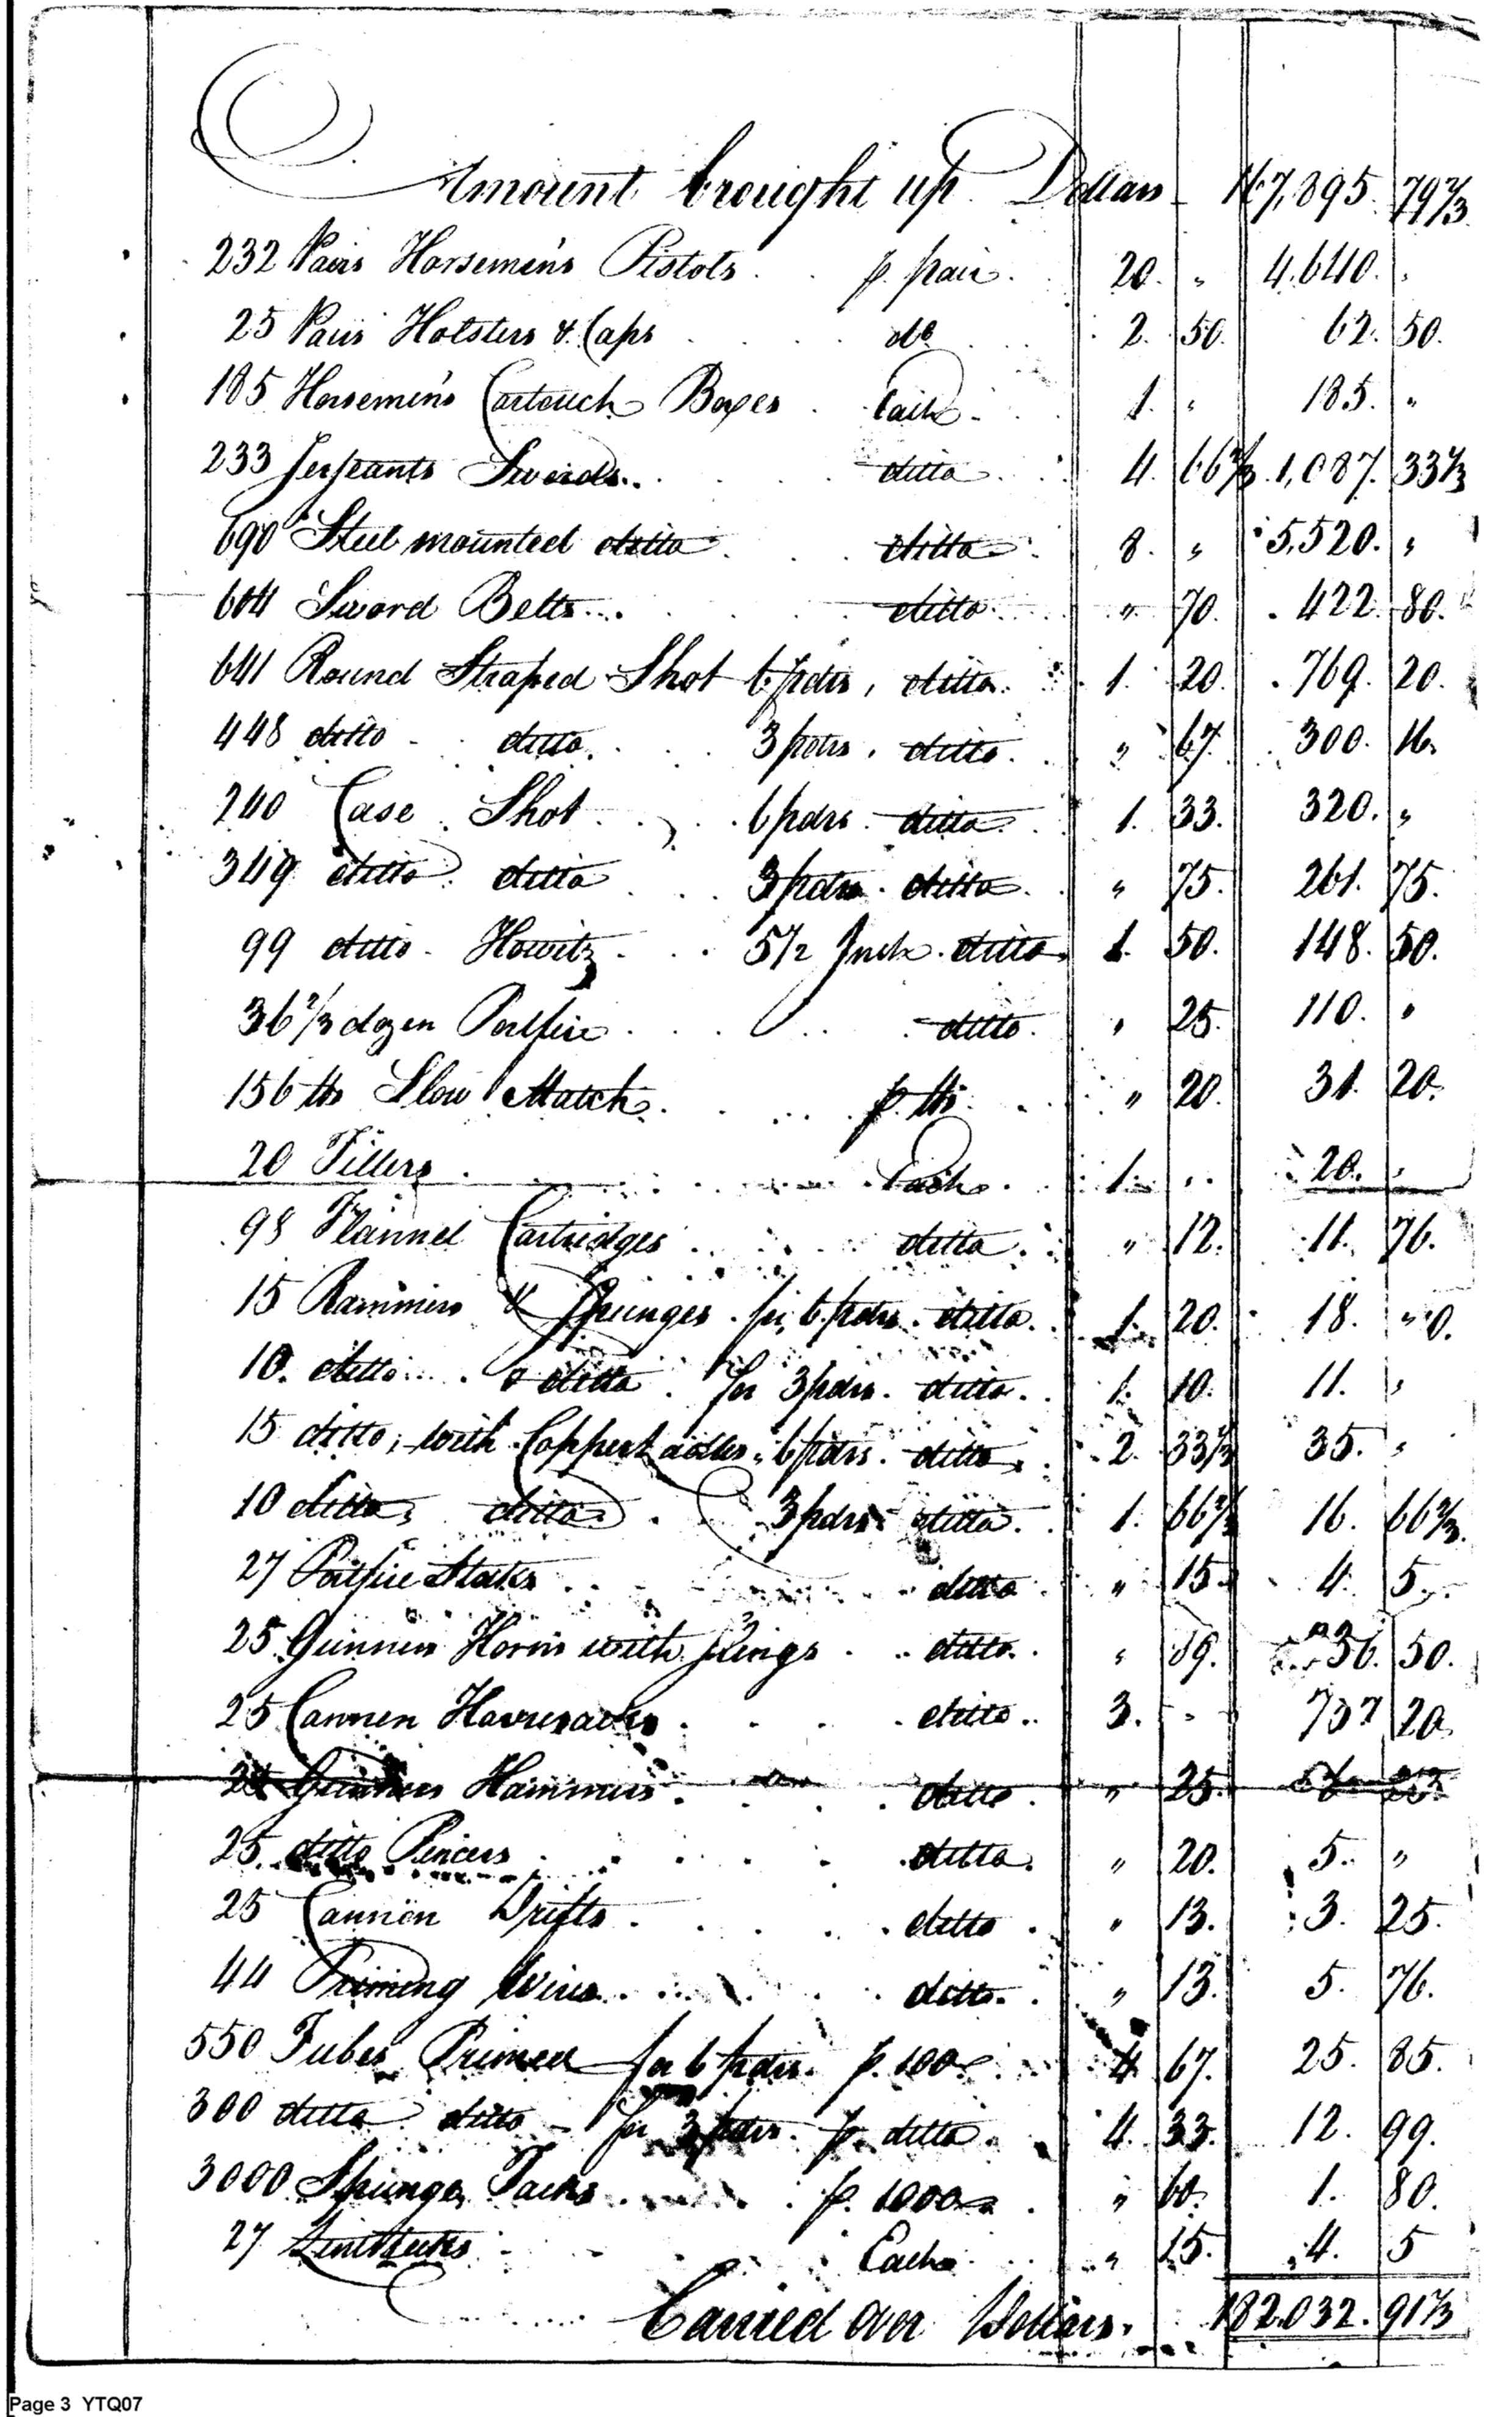 Amount brought up Dollars 167,895. 79 1/3
232 Pairs Horsemens Pistols . . p. pair . 20. " 4,640. "
25 Pair Holsters & Caps . . . do . 2. 50. 62. 50.
185 Horsemens Cartouch Boxes . Each . 1. " 185. "
233 Serjeants Swords . . . ditto . 4. 66 2/3 1,087. 33 1/3
690 Steel mounted ditto . . ditto . 8. " 5,520. "
604 Sword Belts . . . ditto . " 70. 422. 80.
641 Round Straped Shot 6 pdrs, ditto . 1. 20. 769. 20.
448 ditto . ditto . . 3 pdrs, ditto . " 67. 300. 16.
240 Case Shot . . 6 pdrs. ditto . 1. 33. 320. "
349 ditto. ditto . . 3 pdrs. ditto . " 75. 261. 75.
99 ditto. Howitz . . 5 1/2 Inch. ditto . 1. 50. 148. 50.
36 2/3 dozen Portfire . . . ditto . " 25. 110. "
156 lb Slow Match . . . p. lb . " 20. 31. 20.
20 Tillers . . . Each . 1. " 20. "
98 Flannel Cartridges . . . ditto . " 12. 11. 76.
15 Rammers & Spunges for 6 pdrs. ditto . 1. 20. 18. "
10. ditto . & ditto . for 3 pdrs. ditto . 1. 10. 11. "
15 ditto, with Copper Ladles, 6 pdrs. ditto . 2. 33 1/3 35. "
10 ditto, ditto . . 3 pdrs. ditto . 1. 66 2/3 16. 66 2/3
27 Portfire Stocks . . . ditto . " 15. 4. 5.
25 Gunners Horns with Slings . . ditto . " 50.
25 Cannon Haversacks . . . ditto . 3. 20.
Gunners Hammers . . . ditto . " 25.
25 ditto Pincers . . . ditto . " 20. 5. "
25 Cannon Drifts . . . ditto . " 13. 3. 25.
44 Priming Wires . . . ditto . " 13. 5. 76.
550 Tubes Primed for 6 pdrs. p. 100 . 4. 67. 25. 85.
300 ditto ditto - for 3 pdrs. p. ditto . 4. 33. 12. 99.
3000 Spunge Tacks . . . p. 1000 . " 60. 1. 80.
27 Linstocks . . . Each . " 15. 4. 5
Carried over Dollars. 182,032. 91 1/3
Page 3 YTQ07